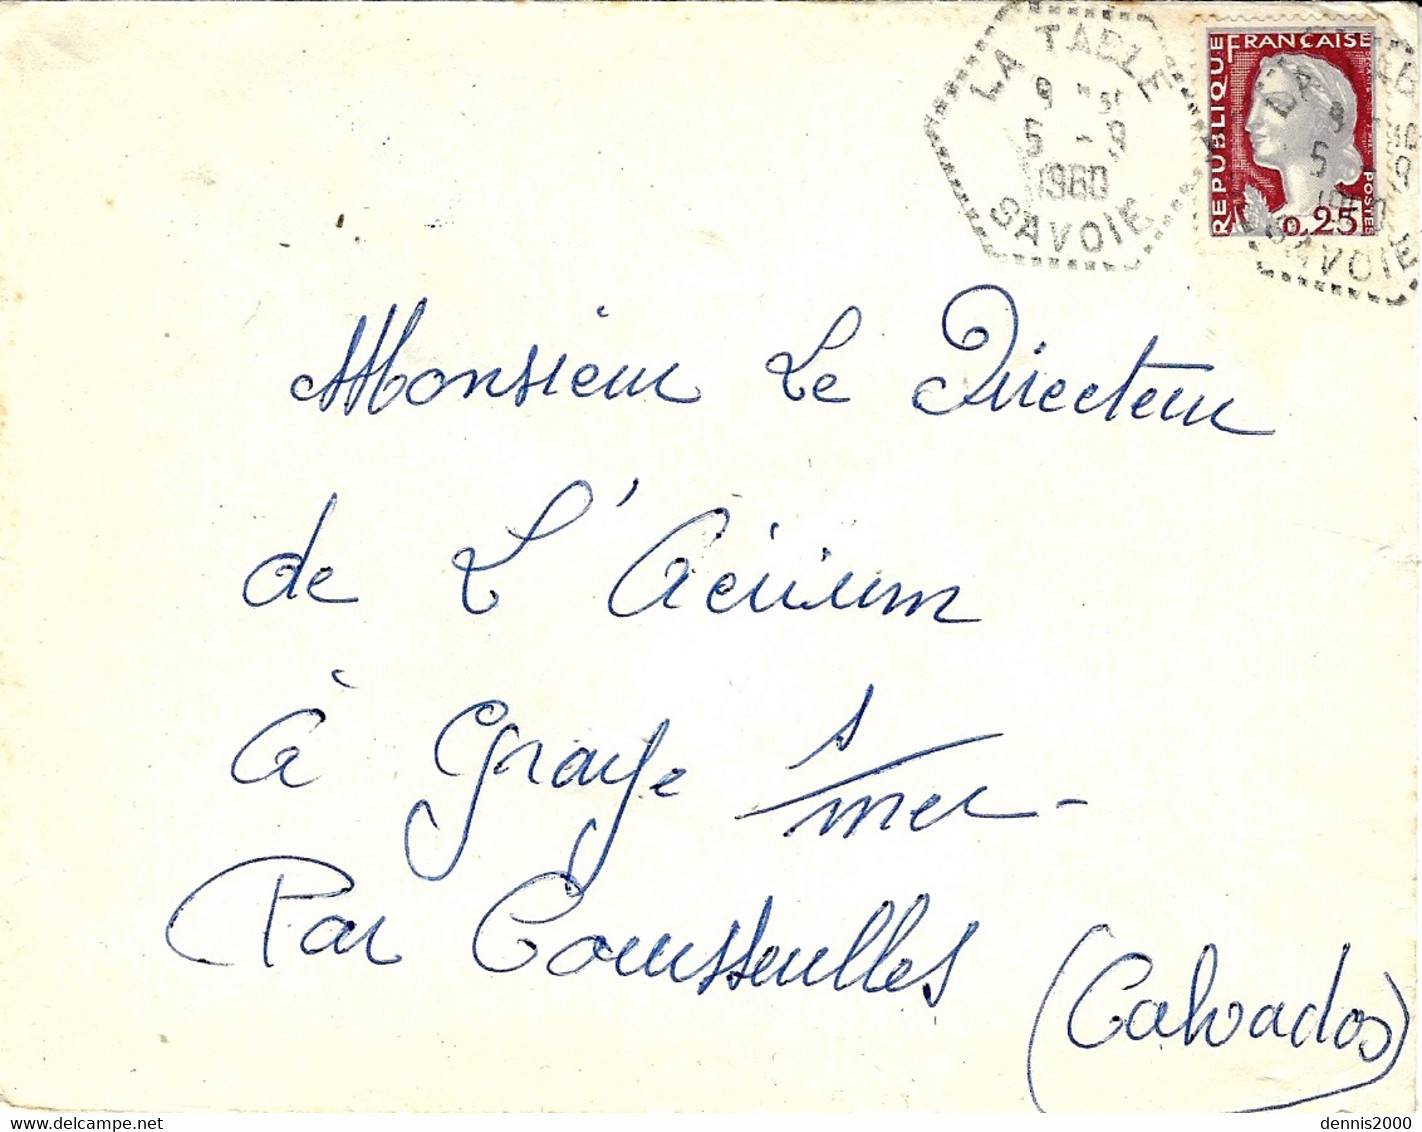 LA TABLE
5 - 9
1960
SAVOIE
REPUBLIQUE FRANÇAISE
POSTES
0,25
5 9
SAVOIE
Monsieur Le Directeur
de L'Aérium
à Graye s/mer -
Par Courseulles (Calvados)
delcampe.net
dennis2000